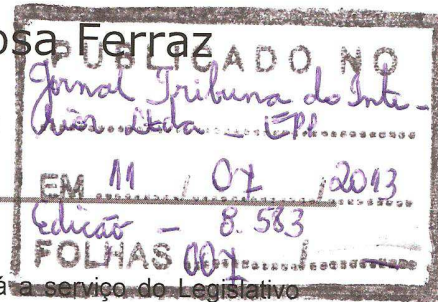 osa Ferraz
PUBLICADO NO
Jornal Tribuna do Inte-
rior Ltda - EPP
EM 11 / 07 / 2013
Edição - 8.583
FOLHAS 007 /
á a serviço do Legislativo